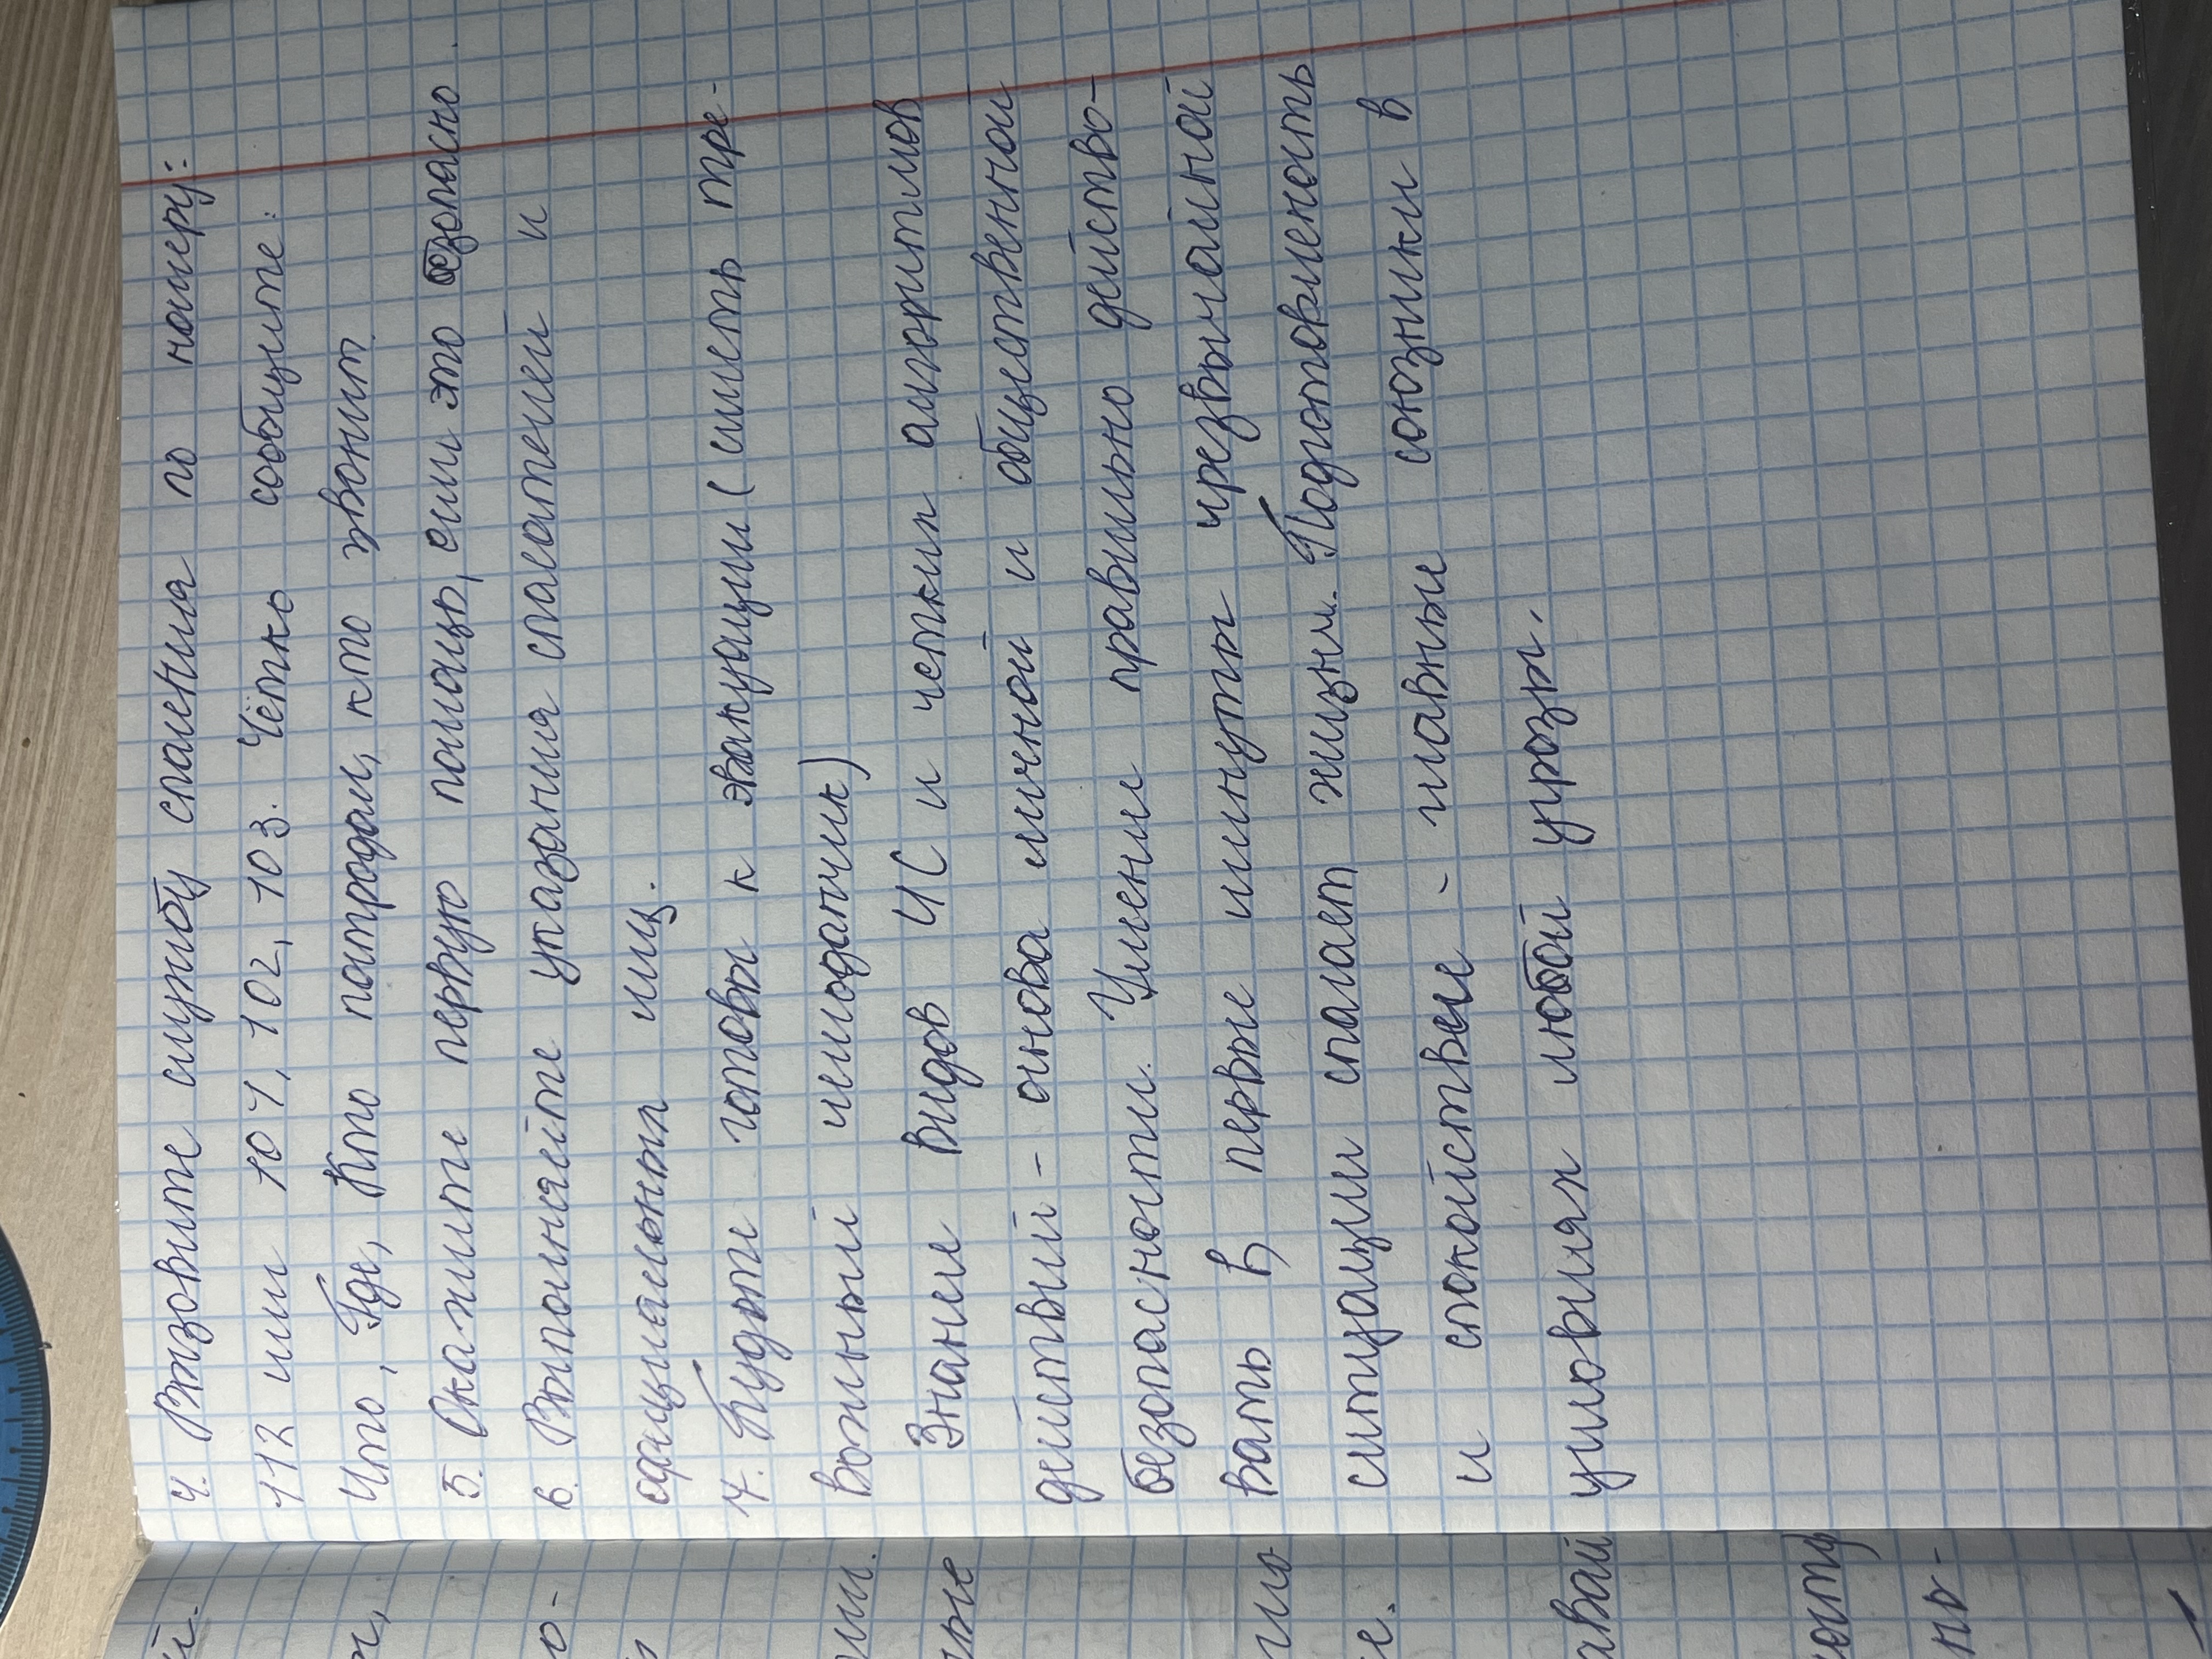 4. Вызовите службу спасения по номеру:
112 или 101, 102, 103. Чётко сообщите:
Что, Где, Кто пострадал, кто звонит.
5. Окажите первую помощь, если это безопасно
6. Выполняйте указания спасателей и
официальных лиц.
7. Будьте готовы к эвакуации (иметь тре-
вожный чемоданчик)
Знание видов ЧС и четких алгоритмов
действий - основа личной и общественной
безопасности. Умение правильно действо-
вать в первые минуты чрезвычайной
ситуации спасает жизни. Подготовленность
и спокойствие - главные союзники в
условиях любой угрозы.